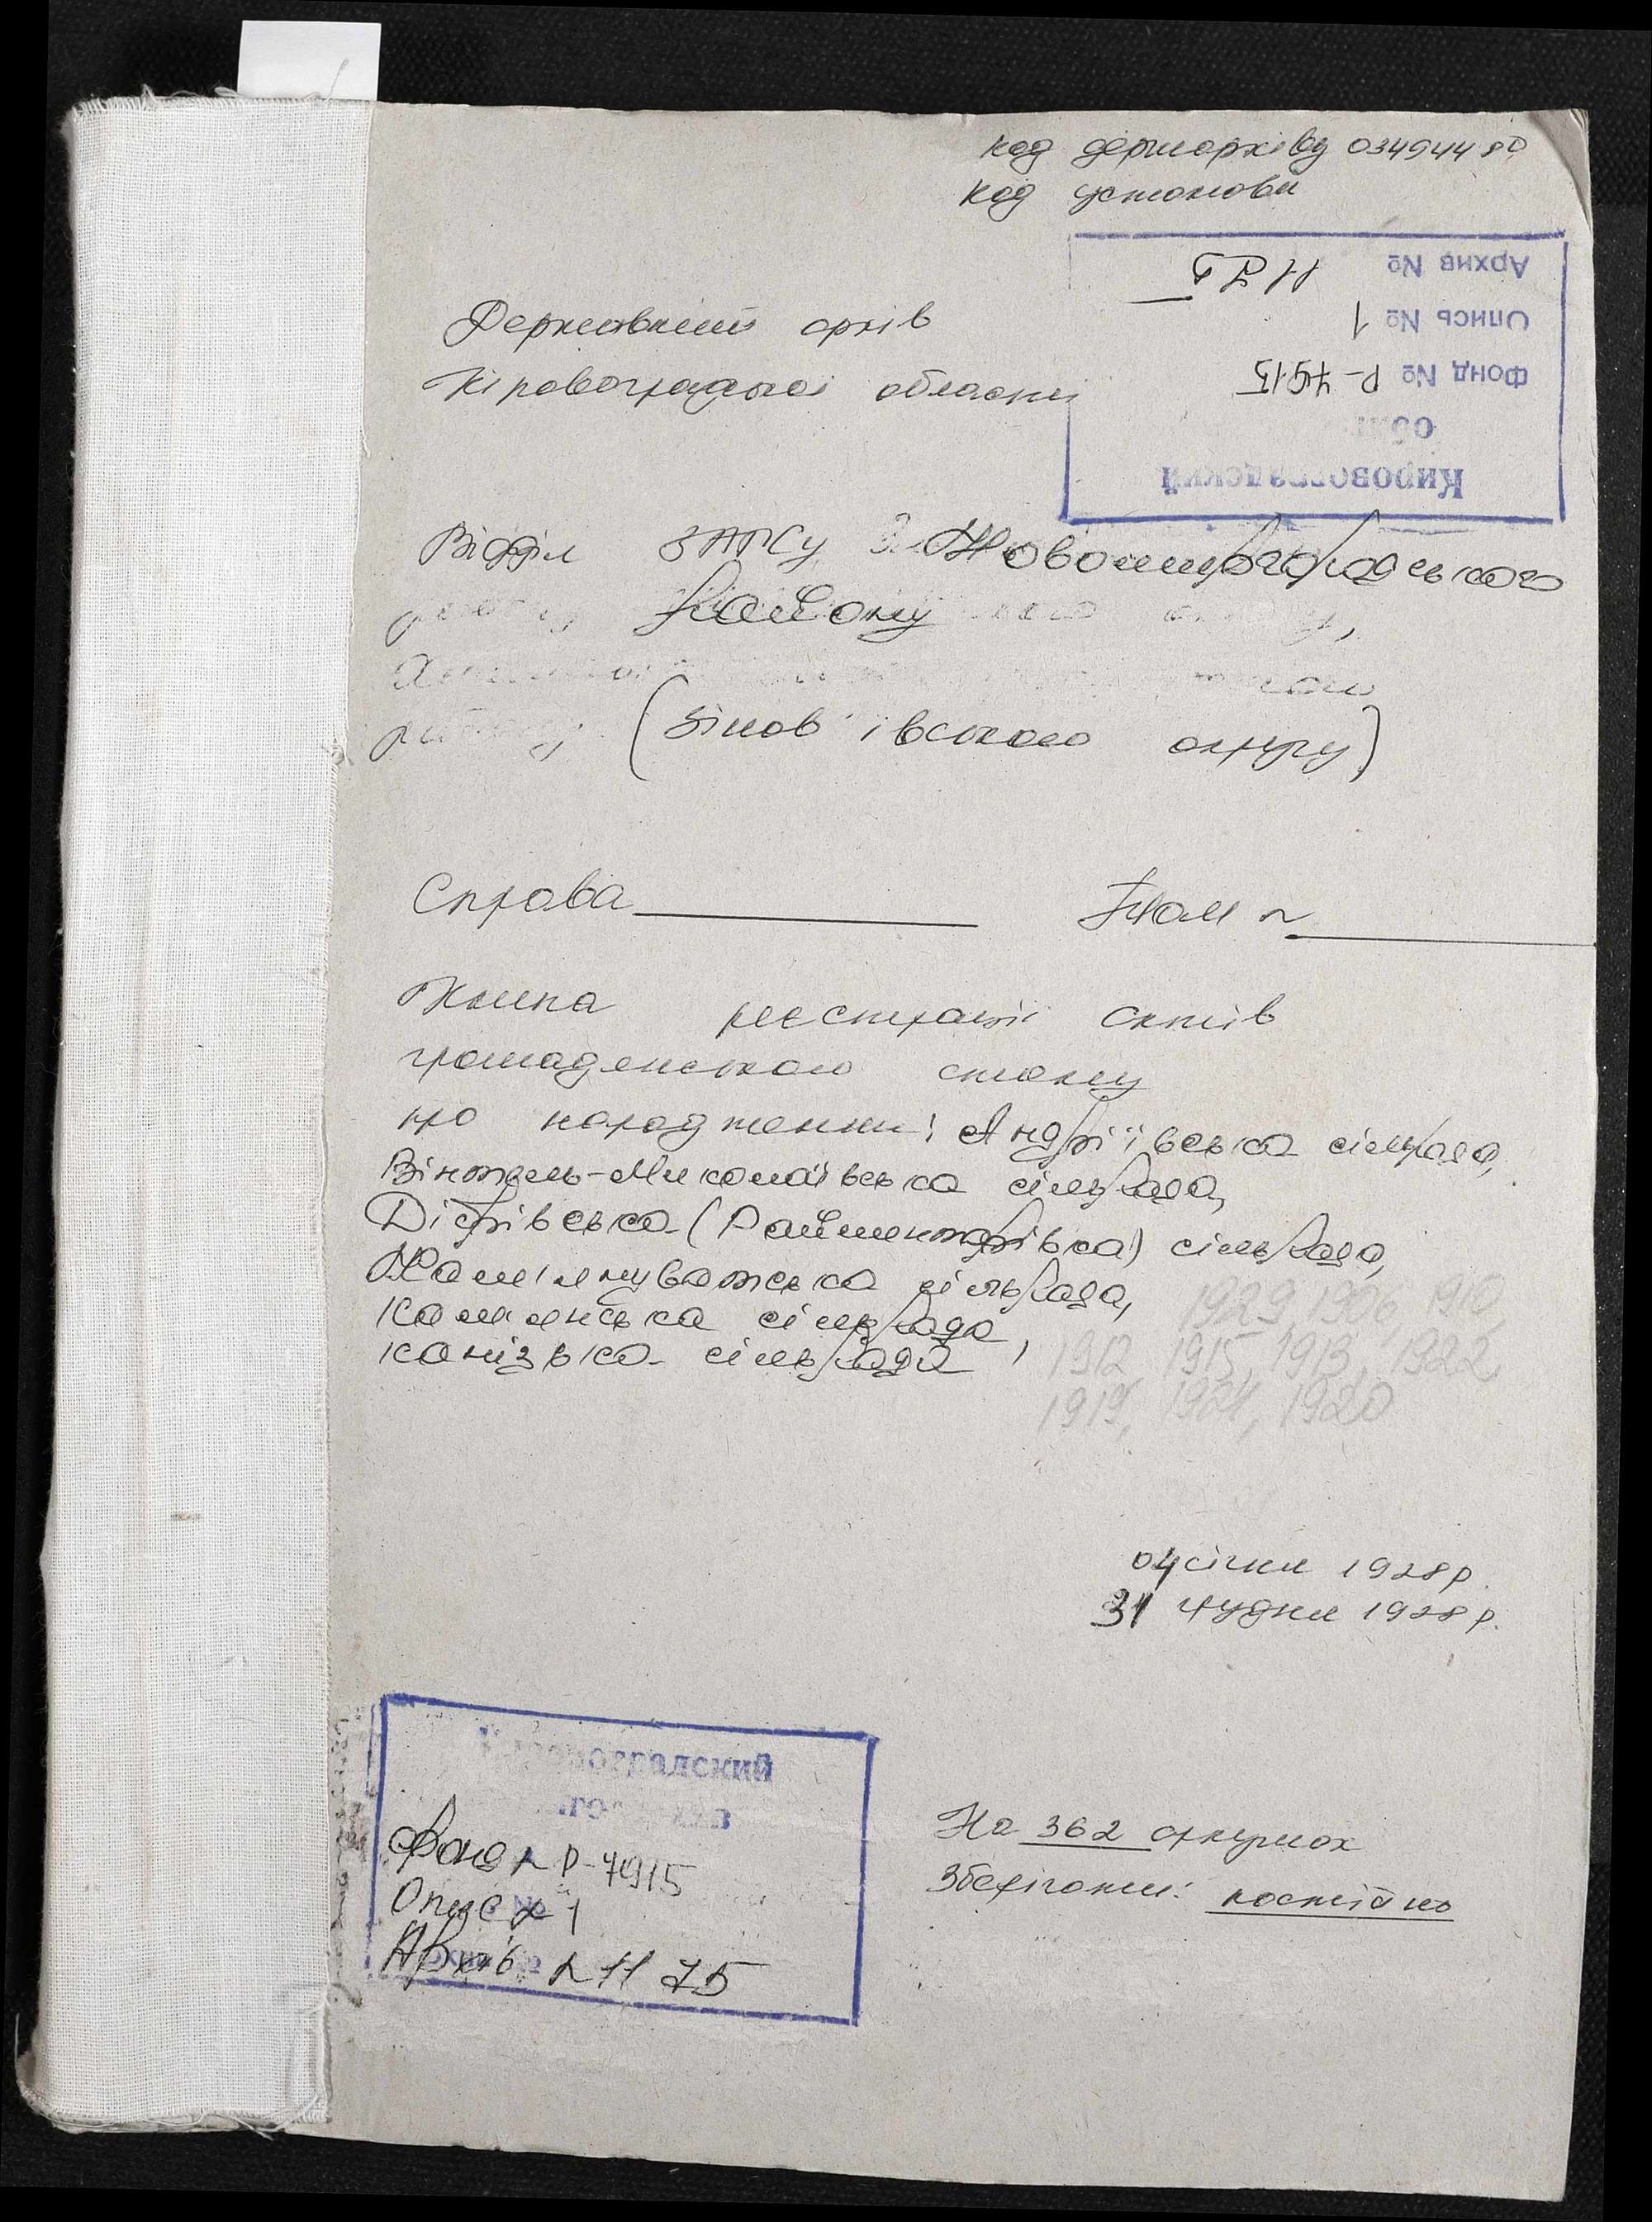 код держархіву 03494480
код установи
Архив № 1175
Опись № 1
Фонд № Р-7915
Кировоградский
Державний архів
Кіровоградської області
Відділ ЗАГСу Новомиргородського
району
(Зінов'ївського округу)
Справа Том №
Книга реєстрації актів
громадянського стану
про народження: Андріївська сільрада,
Вінтжель-Миколаївська сільрада,
Дібрівська (Райментарівка) сільрада,
Кам'януватська сільрада,
Кам'янська сільрада,
Канізька сільрада
1929 1926 1910,
1912 1915, 1913, 1922
1919, 1924, 1920
04 січня 1928 р.
31 грудня 1928 р.
Кировоградский
Фонд № Р-7915
Опис № 1
Архів № 1175
На 362 аркушах
Зберігати: постійно